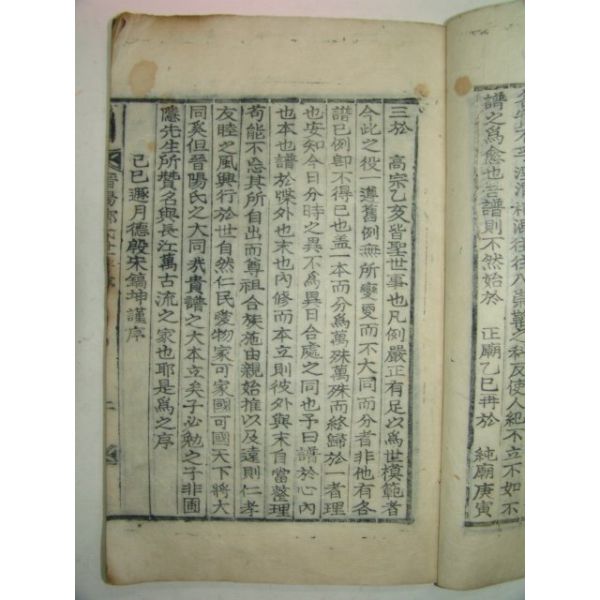 譜之爲愈也吾譜則不然始於 正廟乙巳再於 純廟庚寅
三於 高宗乙亥皆聖世事也凡例嚴正有足以爲世模範者
今此之役一遵舊例無所變更而不大同而分者非他有各
譜已例卽不得已也盖一本而分爲萬殊萬殊而終歸於一者理
也安知今日分時之異不爲異日合處之同也予曰譜於心內
也本也譜於牒外也末也內修而本立則彼外與末自當整理
苟能不忘其所自出而尊祖合族施由親始推以及遠則仁孝
友睦之風興行於世自然仁民愛物家可家國可國天下將大
同奚但晉陽氏之大同哉貴譜之大本立矣子必勉之予非圃
隱先生所贊名與長江萬古流之家也耶是爲之序
己巳 月德殷宋鎬坤謹序